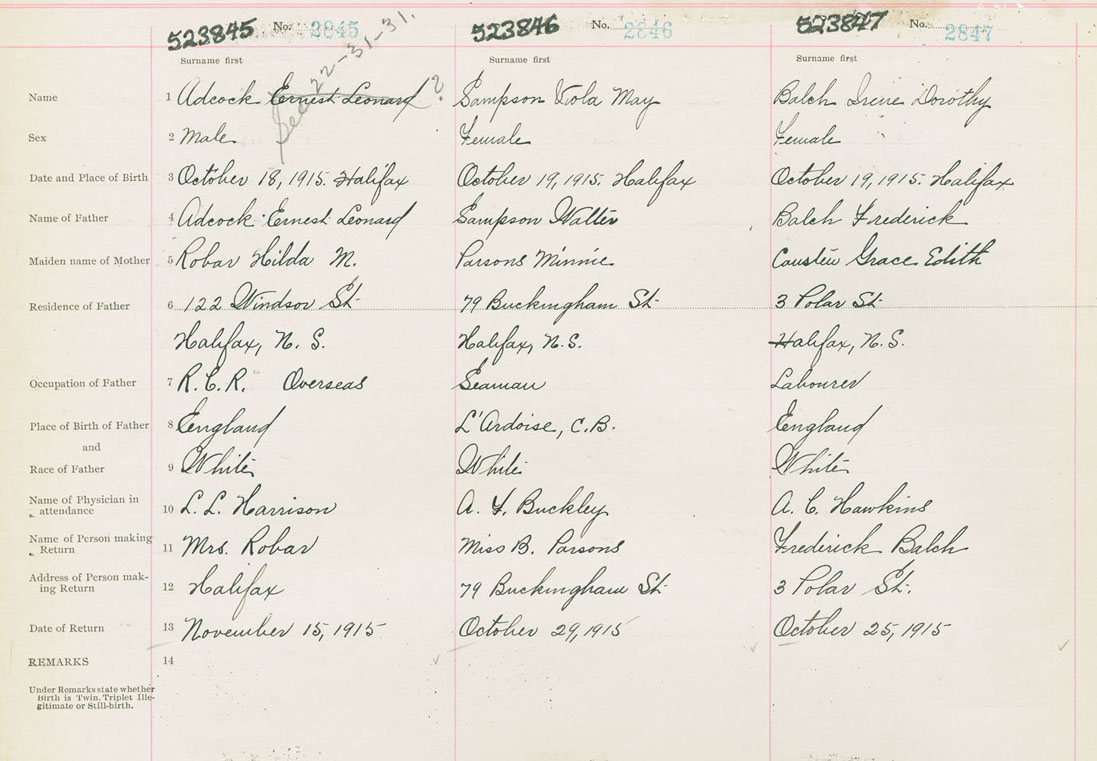 523845 No. 2845 523846 No. 2846 523847 No. 2847
See 22-31-31.
Surname first Surname first Surname first
Name 1 Adcock Ernest Leonard ? Sampson Viola May Balch Irene Dorothy
Sex 2 Male Female Female
Date and Place of Birth 3 October 18, 1915. Halifax October 19, 1915. Halifax October 19, 1915. Halifax
Name of Father 4 Adcock Ernest Leonard Sampson Walter Balch Frederick
Maiden name of Mother 5 Robar Hilda M. Parsons Minnie Grace Edith
Residence of Father 6 122 Windsor St. 79 Buckingham St. 3 Polar St.
Halifax, N. S. Halifax, N.S. Halifax, N.S.
Occupation of Father 7 R.C.R. Overseas Seaman Labourer
Place of Birth of Father 8 England L'Ardoise, C.B. England
and
Race of Father 9 White White White
Name of Physician in
attendance 10 L. L. Harrison A. F. Buckley A. C. Hawkins
Name of Person making
Return 11 Mrs. Robar Miss B. Parsons Frederick Balch
Address of Person mak-
ing Return 12 Halifax 79 Buckingham St. 3 Polar St.
Date of Return 13 November 15, 1915 October 29, 1915 October 25, 1915
REMARKS 14
Under Remarks state whether
Birth is Twin, Triplet Ille-
gitimate or Still-birth.